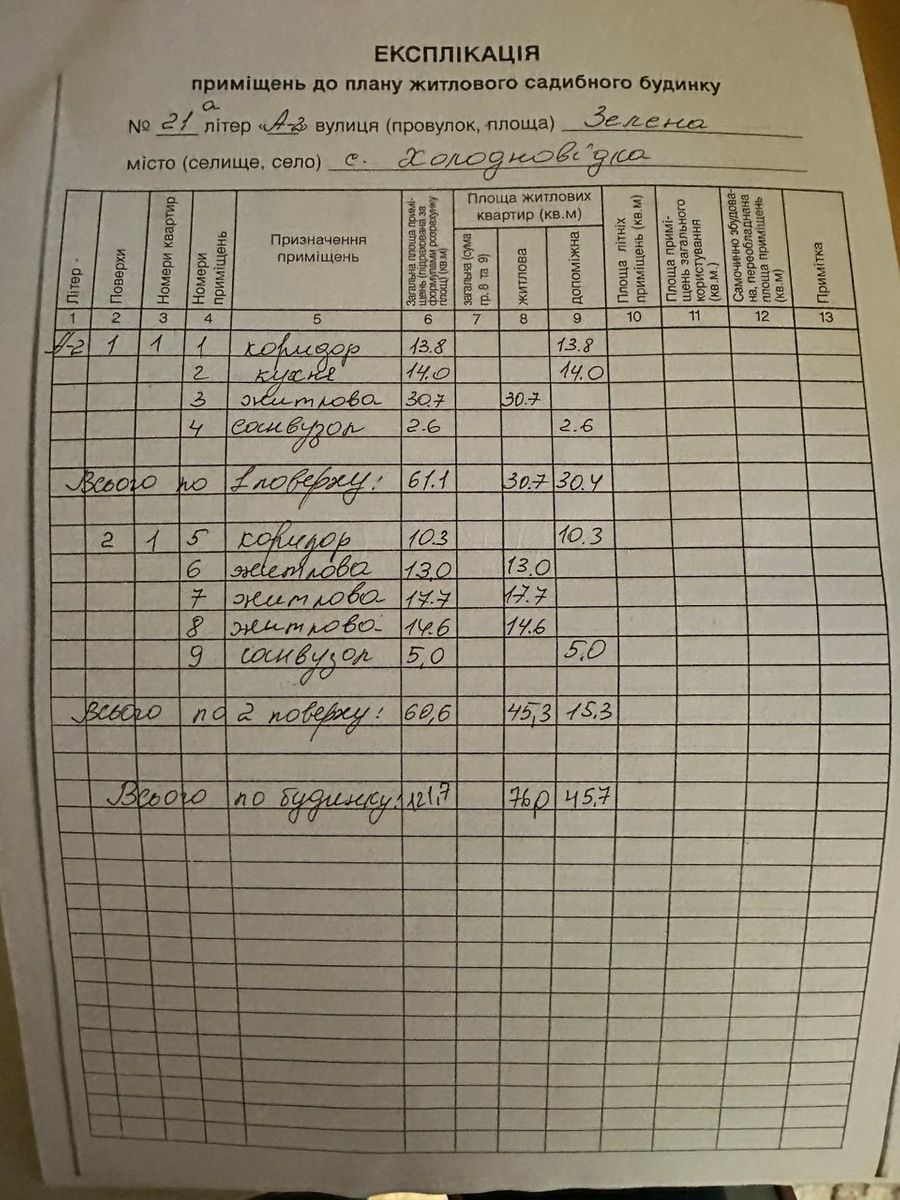 ЕКСПЛІКАЦІЯ
приміщень до плану житлового садибного будинку
№ 21а літер «А-2» вулиця (провулок, площа) Зелена
місто (селище, село) с. Холодновідка
Літер Поверхи Номери квартир Номери приміщень Призначення приміщень Загальна площа приміщень (підрахована за формулами розрахунку площ) (кв.м) Площа житлових квартир (кв.м) загальна (сума гр. 8 та 9) житлова допоміжна Площа літніх приміщень (кв.м) Площа приміщень загального користування (кв.м.) Самочинно збудована, переобладнана площа приміщень (кв.м) Примітка
1 2 3 4 5 6 7 8 9 10 11 12 13
А-2 1 1 1 коридор 13.8 13.8
2 кухне 14.0 14.0
3 житлова 30.7 30.7
4 санвузол 2.6 2.6
Всього по 1 поверху: 61.1 30.7 30.4
2 1 5 коридор 10.3 10.3
6 житлова 13,0 13.0
7 житлова 17.7 17.7
8 житлова 14.6 14.6
9 санвузол 5,0 5.0
Всього по 2 поверху: 60,6 45,3 15.3
Всього по будинку: 121,7 76,0 45.7